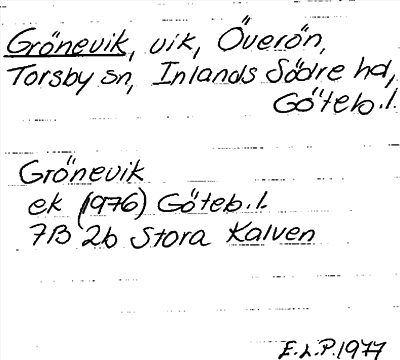 Grönevik, vik, Överön,
Torsby sn, Inlands Södre hd,
Göteb. l.
Grönevik
ek (1976) Göteb. l.
7B 2b Stora Kalven
E.L.P. 1977